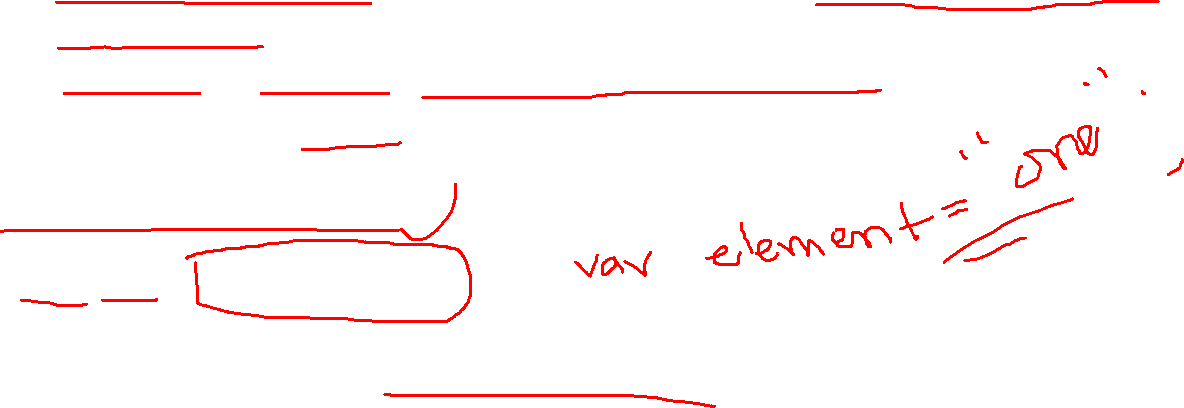 var element = "one";